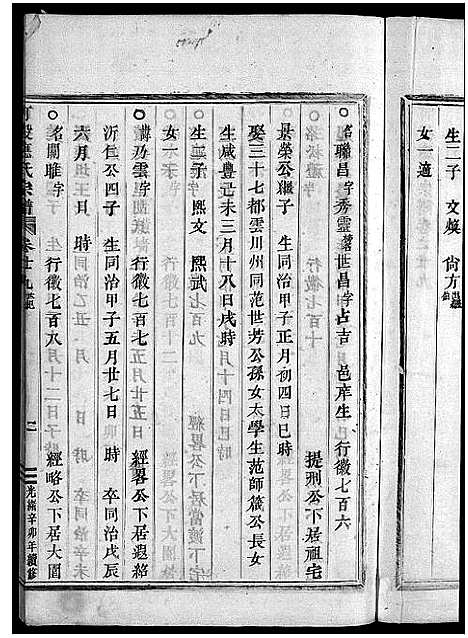 生二子 文煥 尙方
女一適
名聯昌字秀靈 世昌字占吉 邑庠生 行徽七百六
景榮公繼子 生同治甲子正月初四日巳時 提刑公下居祖宅
娶三十七都雲川州同范世芳公孫女太學生范師箴公長女
生咸豐己未三月十八日戌時
生二子 熙文 熙武
女一
乃雲字 行徽七百七 經畧公下居
沂仁公四子 生同治甲子五月廿七日 時 卒同治戊辰
六月 日 時
名關雎字 行徽七百八 經略公下居大園
光緒辛卯年續修